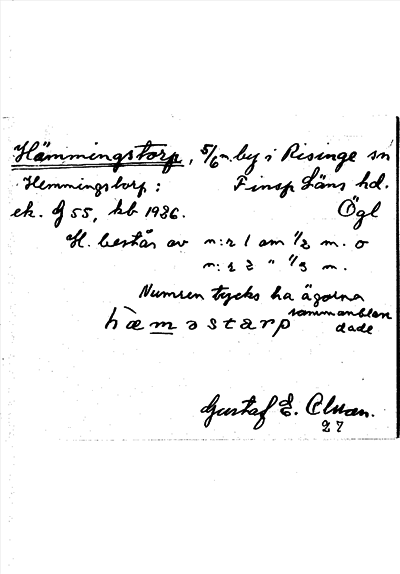 Hämmingstorp, 5/6 m. by i Risinge sn
Hemmingstorp: Finsp Läns hd.
ek. J 55, kb 1936. Ögl
H. består av n:r 1 om 1/2 m. o
n:r 2 " 1/3 m.
Numren tycks ha ägorna
sammanblan
dade
hæməstarp
Gustaf E.
27